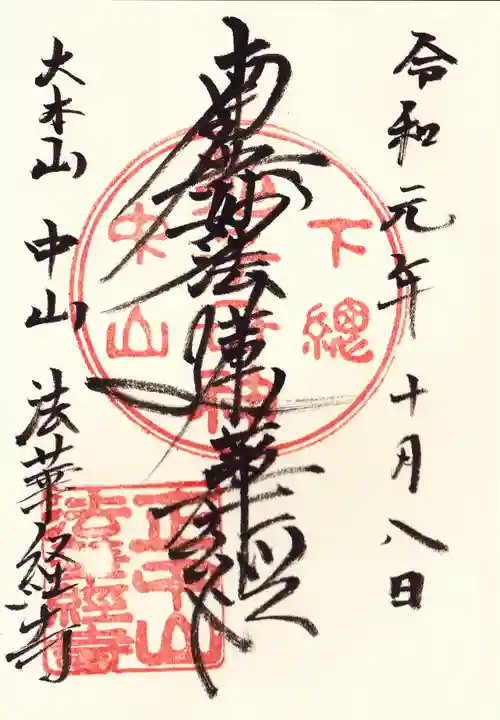 令和元年十月八日
南無妙法蓮華経
大本山 中山 法華経寺
下總
中山
正中山
法華經寺